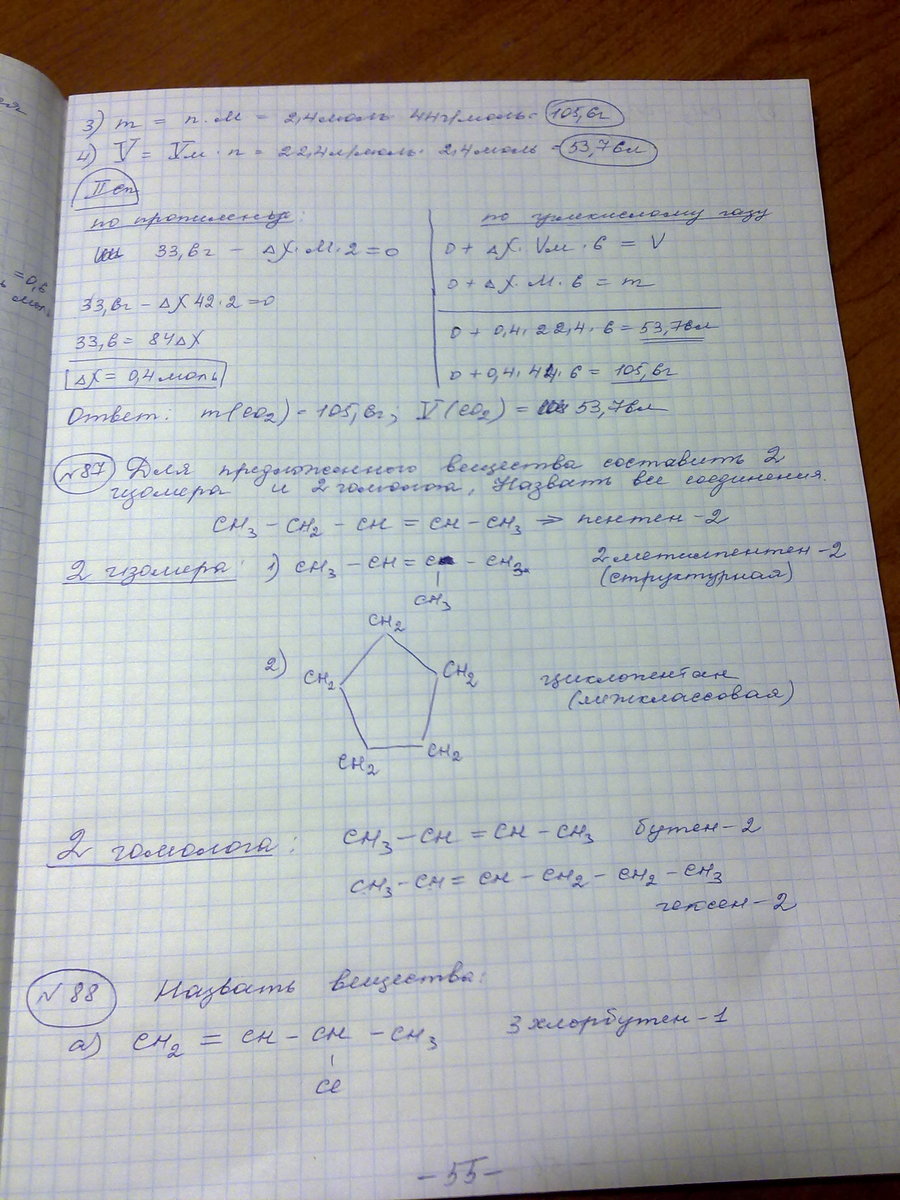 3) m = n · M = 2,4моль · 44г/моль = 105,6г
4) V = Vм · n = 22,4л/моль · 2,4моль = 53,76л
II сп
по пропилену:
33,6г - ΔX · M · 2 = 0
33,6г - ΔX 42 · 2 = 0
33,6 = 84ΔX
ΔX = 0,4 моль
по углекислому газу
0 + ΔX · Vм · 6 = V
0 + ΔX · M · 6 = m
0 + 0,4 · 22,4 · 6 = 53,76л
0 + 0,4 · 44 · 6 = 105,6г
Ответ: m(CO2) = 105,6г, V(CO2) = 53,76л
=0,6
моль
№87 Для предложенного вещества составить 2
изомера и 2 гомолога, Назвать все соединения.
CH3 - CH2 - CH = CH - CH3 ⇒ пентен-2
2 изомера: 1) CH3 - CH = C - CH3 2 метилпентен-2
CH3 (структурная)
2) CH2
CH2 CH2 циклопентан
(межклассовая)
CH2 CH2
2 гомолога: CH3 - CH = CH - CH3 бутен-2
CH3 - CH = CH - CH2 - CH2 - CH3
гексен-2
№88 Назвать вещества:
а) CH2 = CH - CH - CH3 3 хлорбутен-1
Cl
-55-